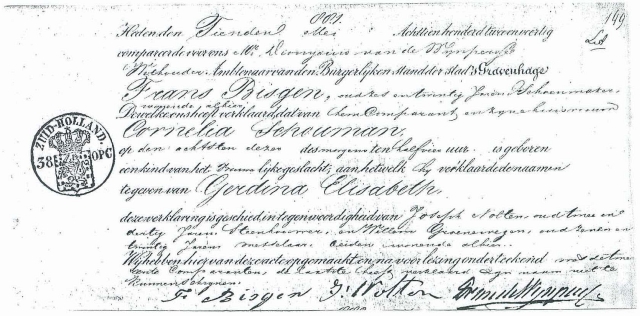 881.
149
Heden den Tienden Mei Achttienhonderd twee en veertig
compareerde voor ons Mr. Dionysius van de Wijnpersse
Wethouder Ambtenaar van den Burgerlijken Stand der stad 's Gravenhage
Frans Bisgen, oud zes en twintig Jaren, Schoenmaker,
wonende alhier
Dewelke ons heeft verklaard dat van hem Comparant en zyne huisvrouw
Cornelia Schouman,
op den achtsten dezer des morgens ten half vier uur is geboren
een kind van het Vrouwelijke geslacht, aan hetwelk hy verklaarde de namen
te geven van Gerdina Elisabeth.
deze verklaring is geschied in tegenwoordigheid van Joseph Nolten, oud twee en
dertig Jaren Steenhouwer, en Willem Groeneweegen, oud zeven en
twintig Jaren metselaar, beiden wonende alhier.
Wij hebben hiervan deze acte opgemaakt en, na voorlezing onderteekend met de
Comparanten, de laatste heeft verklaard zijn naam niet te
kunnen schrijven.
ZUID-HOLLAND
38 OPC
Fr Bisgen J: Nolten